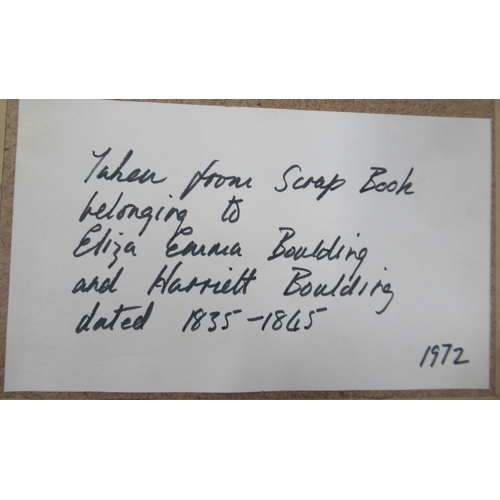 Taken from Scrap Book
belonging to
Eliza Emma Boulding
and Harriett Boulding
dated 1835-1845
1972